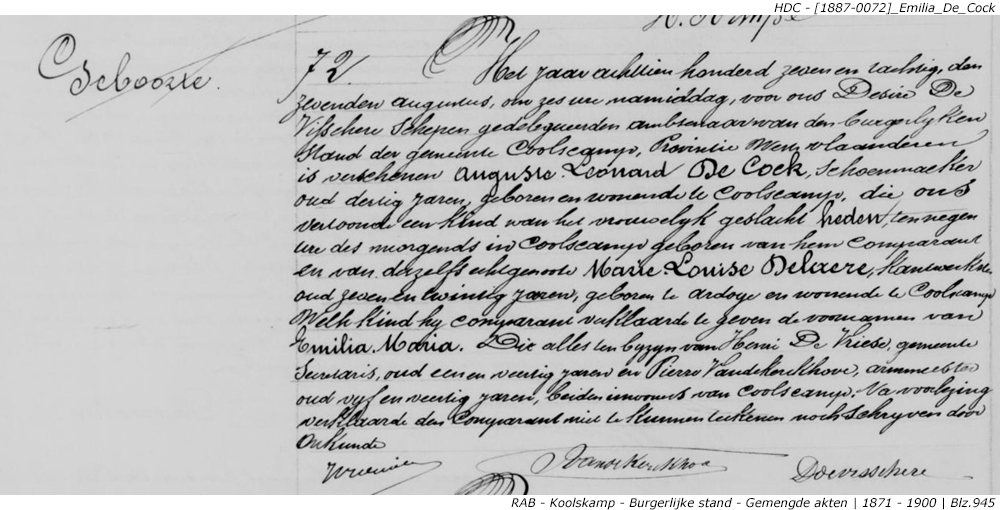 HDC - [1887-0072]_Emilia_De_Cock
Geboorte.
72.
Het jaar achttien honderd zeven en tachtig, den
zevenden augustus, om zes ure namiddag, voor ons Desiré De
Visschere Schepen gedelegueerden ambtenaar van den burgerlyken
stand der gemeente Coolscamp, Provintie West vlaanderen
is verschenen Auguste Leonard De Cock, Schoenmaeker
oud dertig jaren, geboren en wonende te Coolscamp, die ons
vertoonde een kind van het vrouwelyk geslacht heden, ten negen
ure des morgends in Coolscamp geboren van hem comparant
en van dezelfs echtgenoote Marie Louise Delaere, Kantwerkster
oud zeven en twintig jaren, geboren te Ardoye en wonende te Coolscamp
Welk kind hy comparant verklaarde te geven de voornamen van
Emilia Maria. Dit alles ten byzyn van Henri De Vriese, gemeente
Secretaris, oud een en veertig jaren en Pierre Vandekerckhove, armmeester
oud vyf en veertig jaren, beiden inwoners van Coolscamp. Na voorlezing
verklaarde den Comparant niet te kunnen teekenen noch schryven door
Onkunde
Vandekerckhove
Devisschere
RAB - Koolskamp - Burgerlijke stand - Gemengde akten | 1871 - 1900 | Blz.945